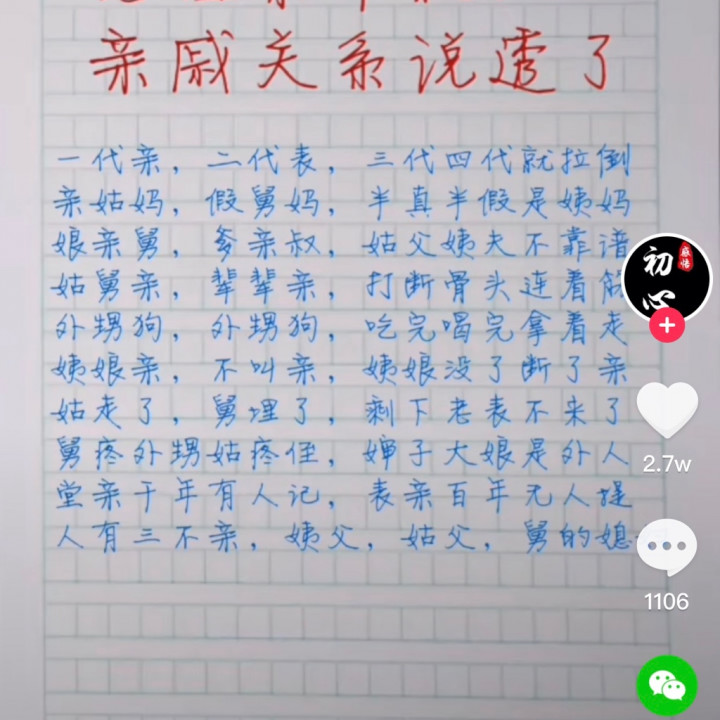 亲戚关系说透了
一代亲，二代表，三代四代就拉倒
亲姑妈，假舅妈，半真半假是姨妈
娘亲舅，爹亲叔，姑父姨夫不靠谱
姑舅亲，辈辈亲，打断骨头连着
外甥狗，外甥狗，吃完喝完拿着走
姨娘亲，不叫亲，姨娘没了断了亲
姑走了，舅埋了，剩下老表不来了
舅疼外甥姑疼侄，婶子大娘是外人
堂亲千年有人记，表亲百年无人提
人有三不亲，姨父，姑父，舅的媳
初心
感悟
2.7w
1106